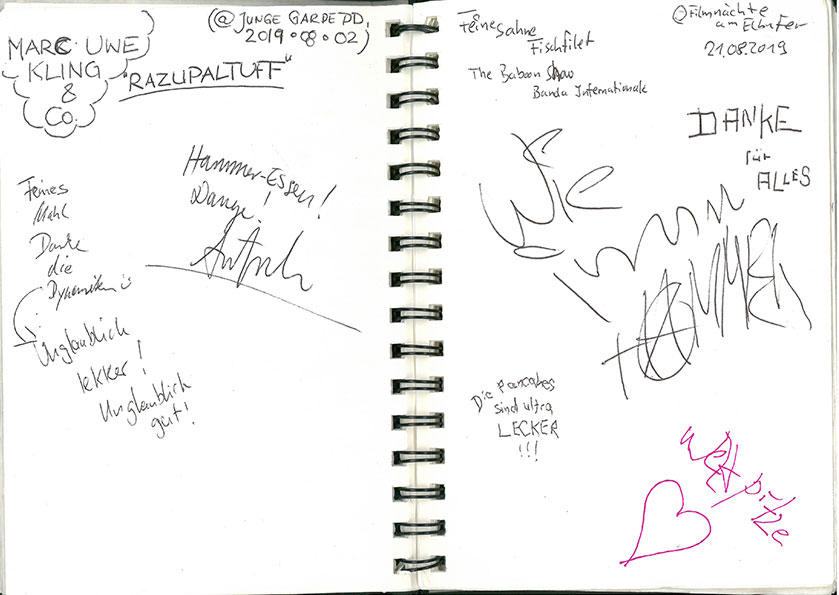 MARC UWE
KLING
&
CO.
(@ JUNGE GARDE DD,
2019•08•02)
"RAZUPALTUFF"
Hammer-Essen!
Danke!
Feines
Mahl
Danke
die
Dynamiken
Unglaublich
lekker!
Unglaublich
gut!
Feine Sahne
Fischfilet
The Baboon Show
Banda Internationale
@ Filmnächte
am Elbufer
21.08.2019
DANKE
für
ALLES
Wie
immer
HAMMER
Die Pancakes
sind ultra
LECKER
!!!
Weltspitze